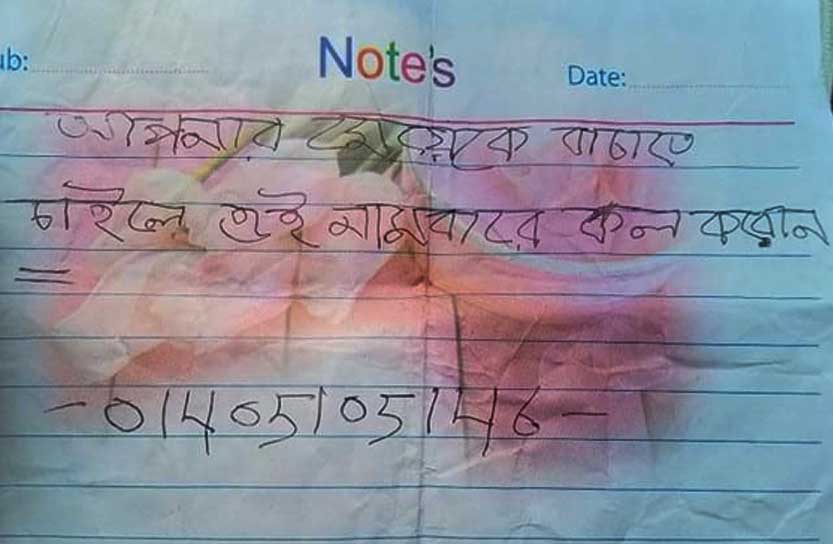 ub:
Note's
Date:
আপনার মেয়েকে বাচাতে
চাইলে এই নামবারে কল করোন
=
- 01405105146 -